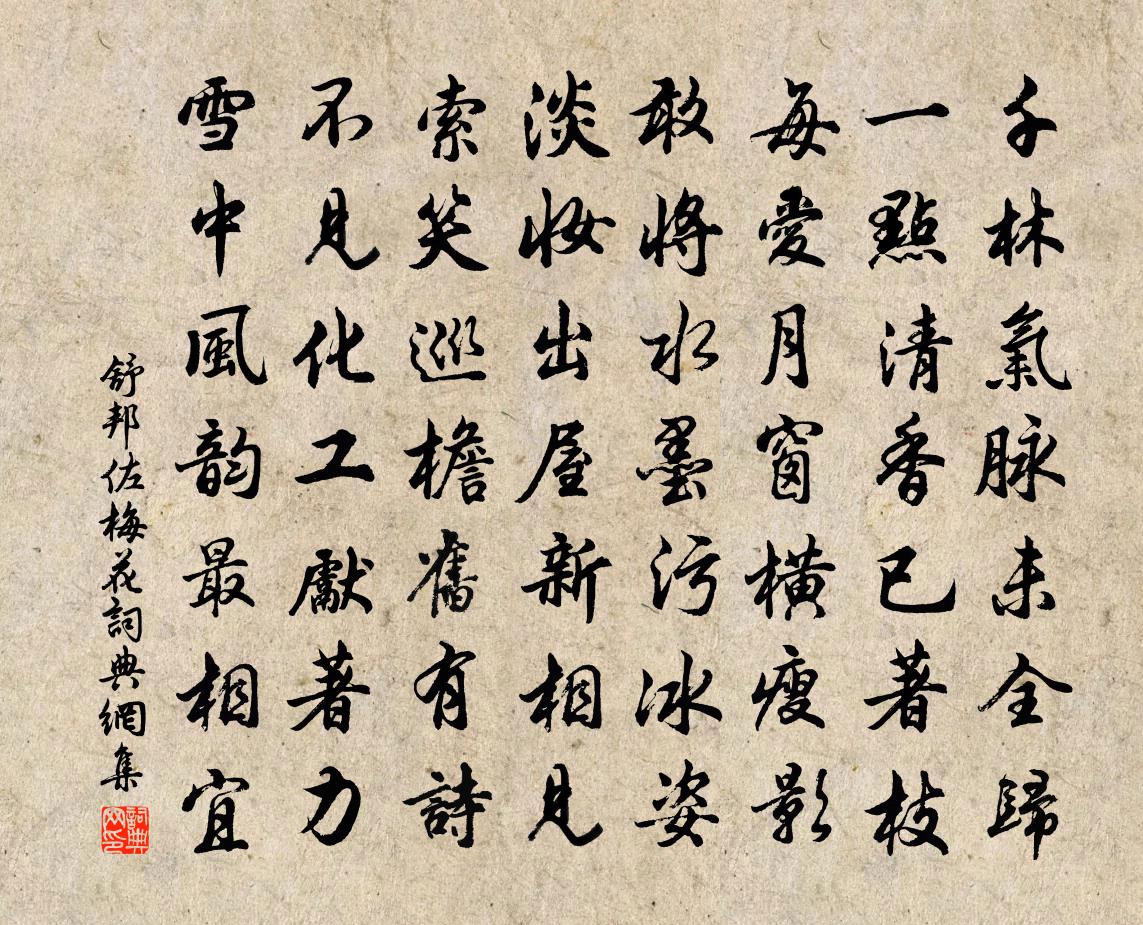 千林氣脉未全歸
一點清香已著枝
每愛月窗橫瘦影
敢將水墨污冰姿
淡妝出屋新相見
索笑巡檐舊有詩
不見化工獻著力
雪中風韵最相宜
舒邦佐梅花詞典網集
詞典網印